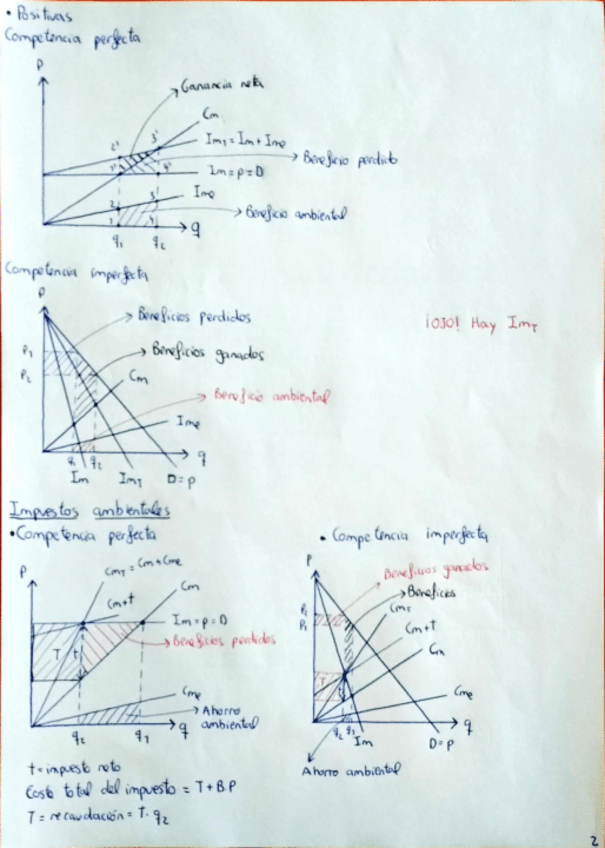 • Positivas
Competencia perfecta
P
Ganancia neta
Cm
Im_T = Im + Ime
2' 3'
Beneficio perdido
1' 4'
Im = p = D
Ime
2 3
Beneficio ambiental
1 4
q₁ q₂ q
Competencia imperfecta
P
Beneficios perdidos
¡OJO! Hay Im_T
P₁
Beneficios ganados
P₂
Cm
Beneficio ambiental
Ime
q₁ q₂ q
Im Im_T D=p
Impuestos ambientales
• Competencia perfecta
P
Cm_T = Cm + Cme
Cm
Cm+t
Im = p = D
T t
Beneficios perdidos
Cme
Ahorro
ambiental
q₂ q₁ q
t = impuesto neto
Coste total del impuesto = T + B.P
T = recaudación = T · q₂
• Competencia imperfecta
P
Beneficios ganados
Beneficios
P₂
Cm_T
P₁
Cm+t
Cm
T
Cme
q₂ q₁ q
Im D=p
Ahorro ambiental
2